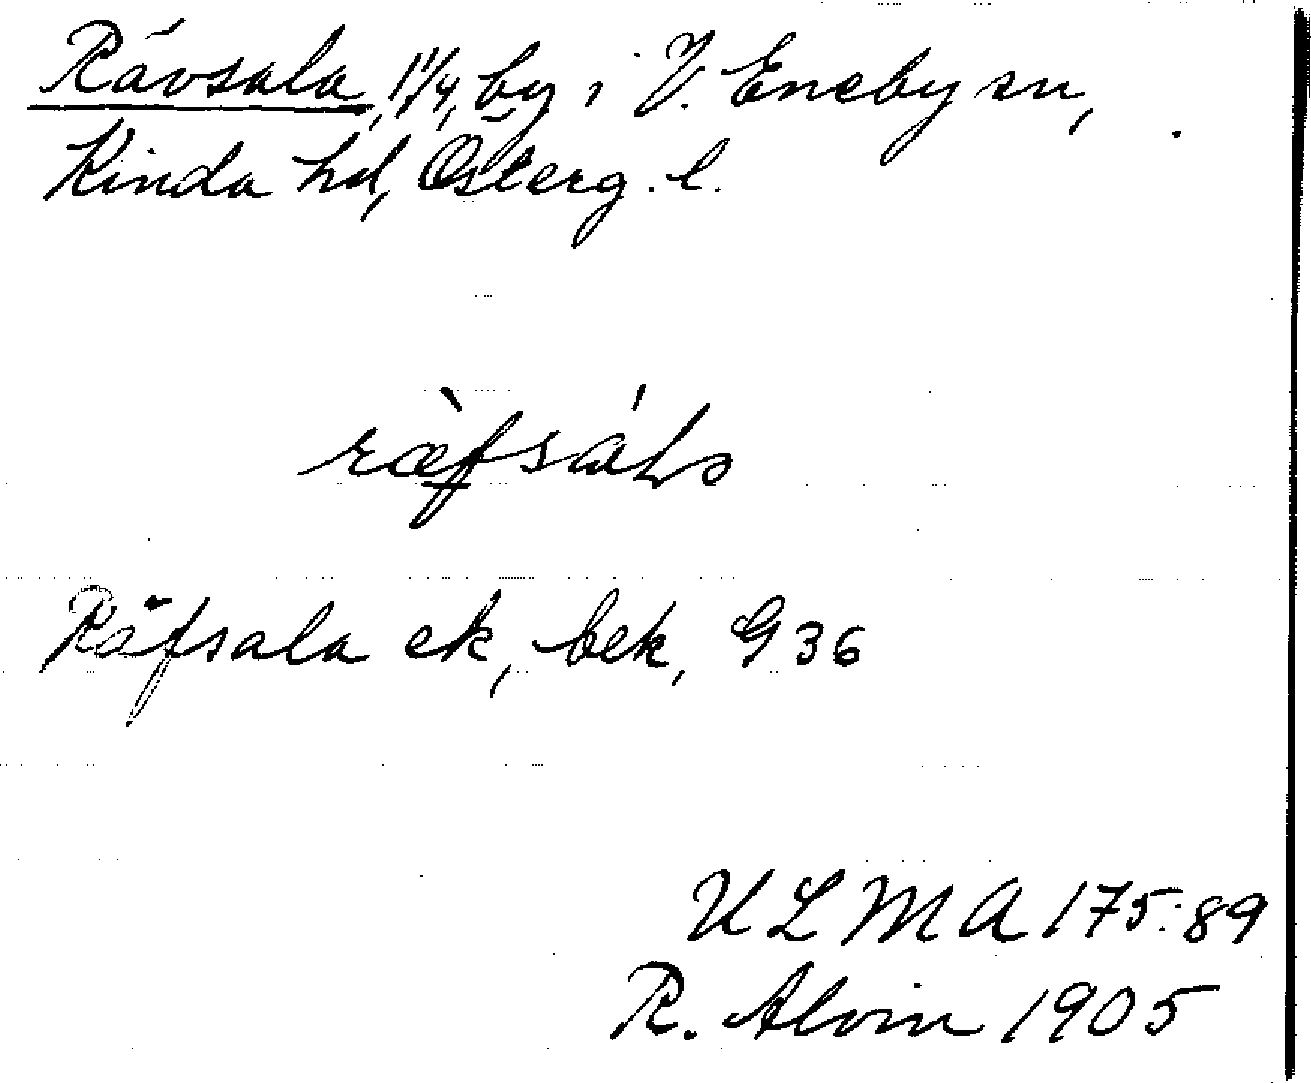 Rävsala, 1 1/4, by i V. Eneby sn,
Kinda hd, Österg. l.
Räfsala ek, bek, G 36
ULMA 175:89
R. Alvin 1905